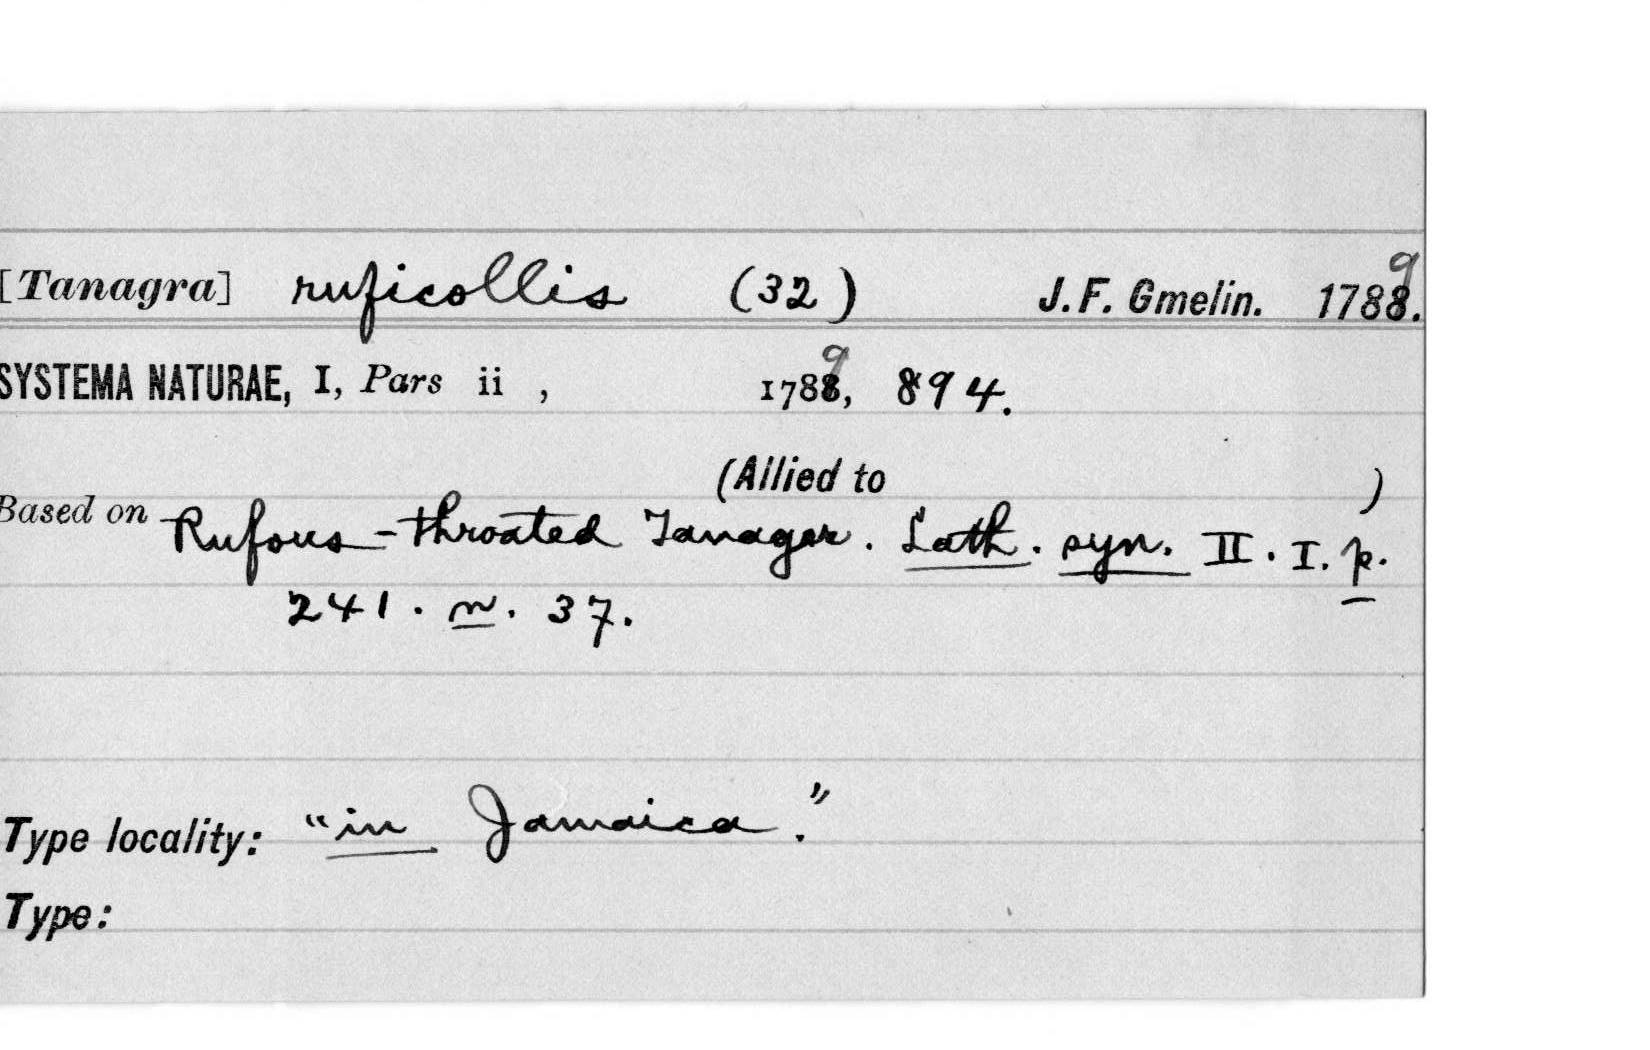 [Tanagra] ruficollis (32) J. F. Gmelin. 1789.
SYSTEMA NATURAE, I, Pars ii , 1789, 894.
(Allied to )
Based on Rufous-throated Tanager. Lath. syn. II. I. p.
241. n. 37.
Type locality: "in Jamaica."
Type: